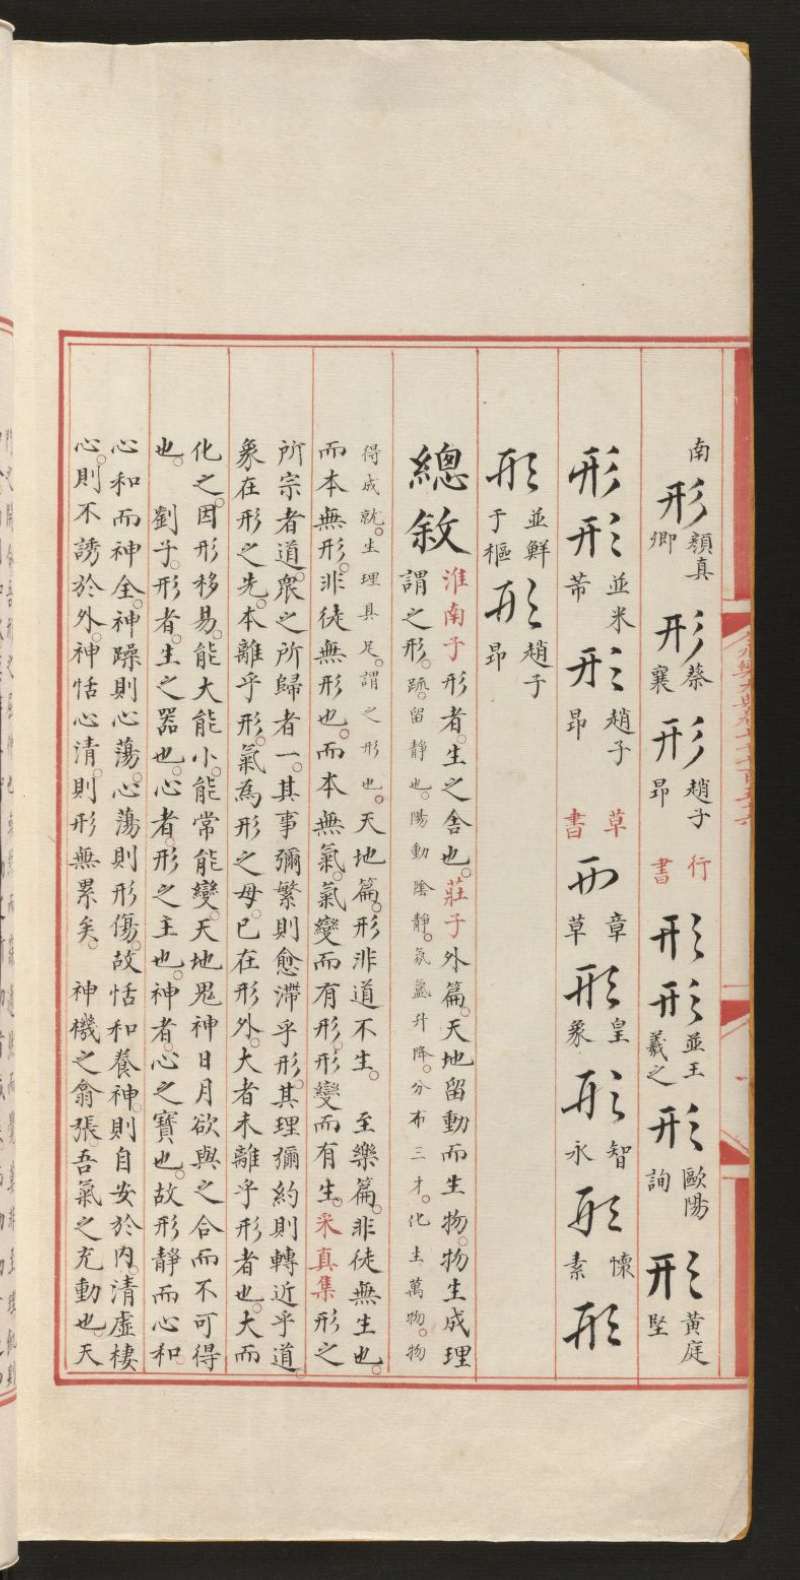 南形顏真卿形蔡襄形趙子昂行書形形並王羲之形歐陽詢形黃庭堅
形形並米芾形趙子昂草書形章草形皇象形智永形懷素形
形並鮮于樞形趙子昂
總敘
淮南子形者。生之舍也。莊子外篇。天地留動而生物。物生成理
謂之形。䟽。留靜也。陽動陰靜。氛氳升降。分布三才。化生萬物。物
得成就。生理具足。謂之形也。天地篇。形非道不生。 至樂篇。非徒無生也。
而本無形。非徒無形也。而本無氣。氣變而有形。形變而有生。采真集形之
所宗者道。衆之所歸者一。其事彌繁則愈滯乎形。其理彌約則轉近乎道。
象在形之先。本離乎形。氣為形之母。已在形外。大者未離乎形者也。大而
化之。因形移易。能大能小。能常能變。天地鬼神日月欲與之合而不可得
也。 劉子。形者。生之器也。心者。形之主也。神者心之寶也。故形靜而心和。
心和而神全。神躁則心蕩。心蕩則形傷。故恬和養神。則自安於內。清虛棲
心。則不誘於外。神恬心清。則形無累矣。 神機之翕張。吾氣之充動也。天